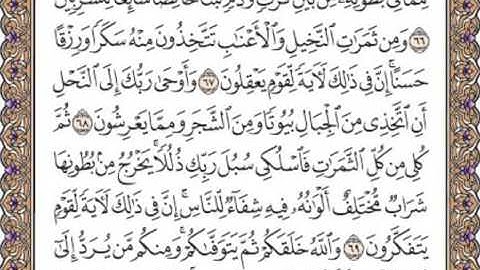 مِّمَّا فِي بُطُونِهِۦ مِنۢ بَيْنِ فَرْثٍ وَدَمٍ لَّبَنًا خَالِصًا سَآئِغًا لِّلشَّٰرِبِينَ
٦٦ وَمِن ثَمَرَٰتِ ٱلنَّخِيلِ وَٱلْأَعْنَٰبِ تَتَّخِذُونَ مِنْهُ سَكَرًا وَرِزْقًا
حَسَنًا ۗ إِنَّ فِي ذَٰلِكَ لَءَايَةً لِّقَوْمٍ يَعْقِلُونَ ٦٧ وَأَوْحَىٰ رَبُّكَ إِلَى ٱلنَّحْلِ
أَنِ ٱتَّخِذِي مِنَ ٱلْجِبَالِ بُيُوتًا وَمِنَ ٱلشَّجَرِ وَمِمَّا يَعْرِشُونَ ٦٨ ثُمَّ
كُلِي مِن كُلِّ ٱلثَّمَرَٰتِ فَٱسْلُكِي سُبُلَ رَبِّكِ ذُلُلًا ۚ يَخْرُجُ مِنۢ بُطُونِهَا
شَرَابٌ مُّخْتَلِفٌ أَلْوَٰنُهُۥ فِيهِ شِفَآءٌ لِّلنَّاسِ ۗ إِنَّ فِي ذَٰلِكَ لَءَايَةً لِّقَوْمٍ
يَتَفَكَّرُونَ ٦٩ وَٱللَّهُ خَلَقَكُمْ ثُمَّ يَتَوَفَّىٰكُمْ ۚ وَمِنكُم مَّن يُرَدُّ إِلَىٰٓ